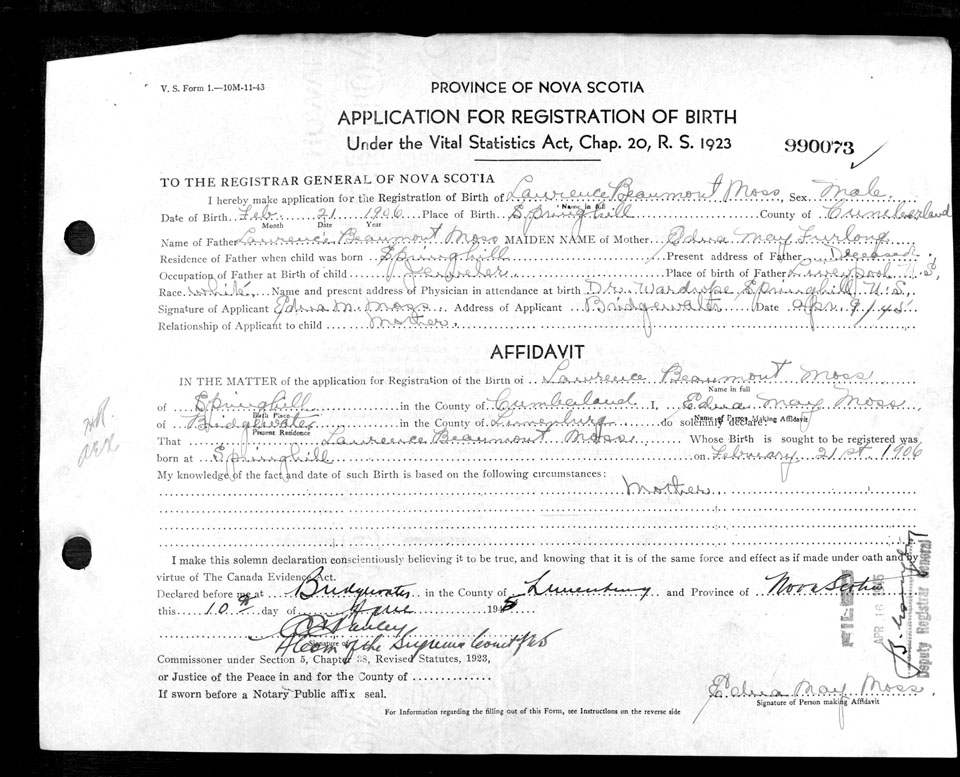 V. S. Form 1.—10M-11-43
PROVINCE OF NOVA SCOTIA
APPLICATION FOR REGISTRATION OF BIRTH
Under the Vital Statistics Act, Chap. 20, R. S. 1923
990073
TO THE REGISTRAR GENERAL OF NOVA SCOTIA
I hereby make application for the Registration of Birth of Lawrence Beaumont Moss Sex Male
Name in full
Date of Birth Feb. 21 1906 Place of Birth Springhill County of Cumberland
Month Date Year
Name of Father Lawrence Beaumont Moss MAIDEN NAME of Mother Edna May Furlong
Residence of Father when child was born Springhill Present address of Father Deceased
Occupation of Father at Birth of child Jeweler Place of birth of Father Liverpool
Race white Name and present address of Physician in attendance at birth Dr. Wardrope Springhill N.S.
Signature of Applicant Edna M. Moss Address of Applicant Bridgewater Date Apr. 9/45
Relationship of Applicant to child Mother.
AFFIDAVIT
IN THE MATTER of the application for Registration of the Birth of Lawrence Beaumont Moss
Name in full
of Springhill in the County of Cumberland I, Edna May Moss
Birth Place Name of Person Making Affidavit
of Bridgewater in the County of Lunenburg do solemnly declare:
Present Residence
That Lawrence Beaumont Moss Whose Birth is sought to be registered was
born at Springhill on February 21st. 1906
My knowledge of the fact and date of such Birth is based on the following circumstances:
Mother
I make this solemn declaration conscientiously believing it to be true, and knowing that it is of the same force and effect as if made under oath and by
virtue of The Canada Evidence Act.
Declared before me at Bridgewater in the County of Lunenburg and Province of Nova Scotia
this 10th day of 1945
Signature of
A Com of the Supreme Court
Commissioner under Section 5, Chapter 38, Revised Statutes, 1923,
or Justice of the Peace in and for the County of
If sworn before a Notary Public affix seal.
Edna May Moss
Signature of Person making Affidavit
For Information regarding the filling out of this Form, see Instructions on the reverse side
FILED
APR 16
Deputy Registrar General